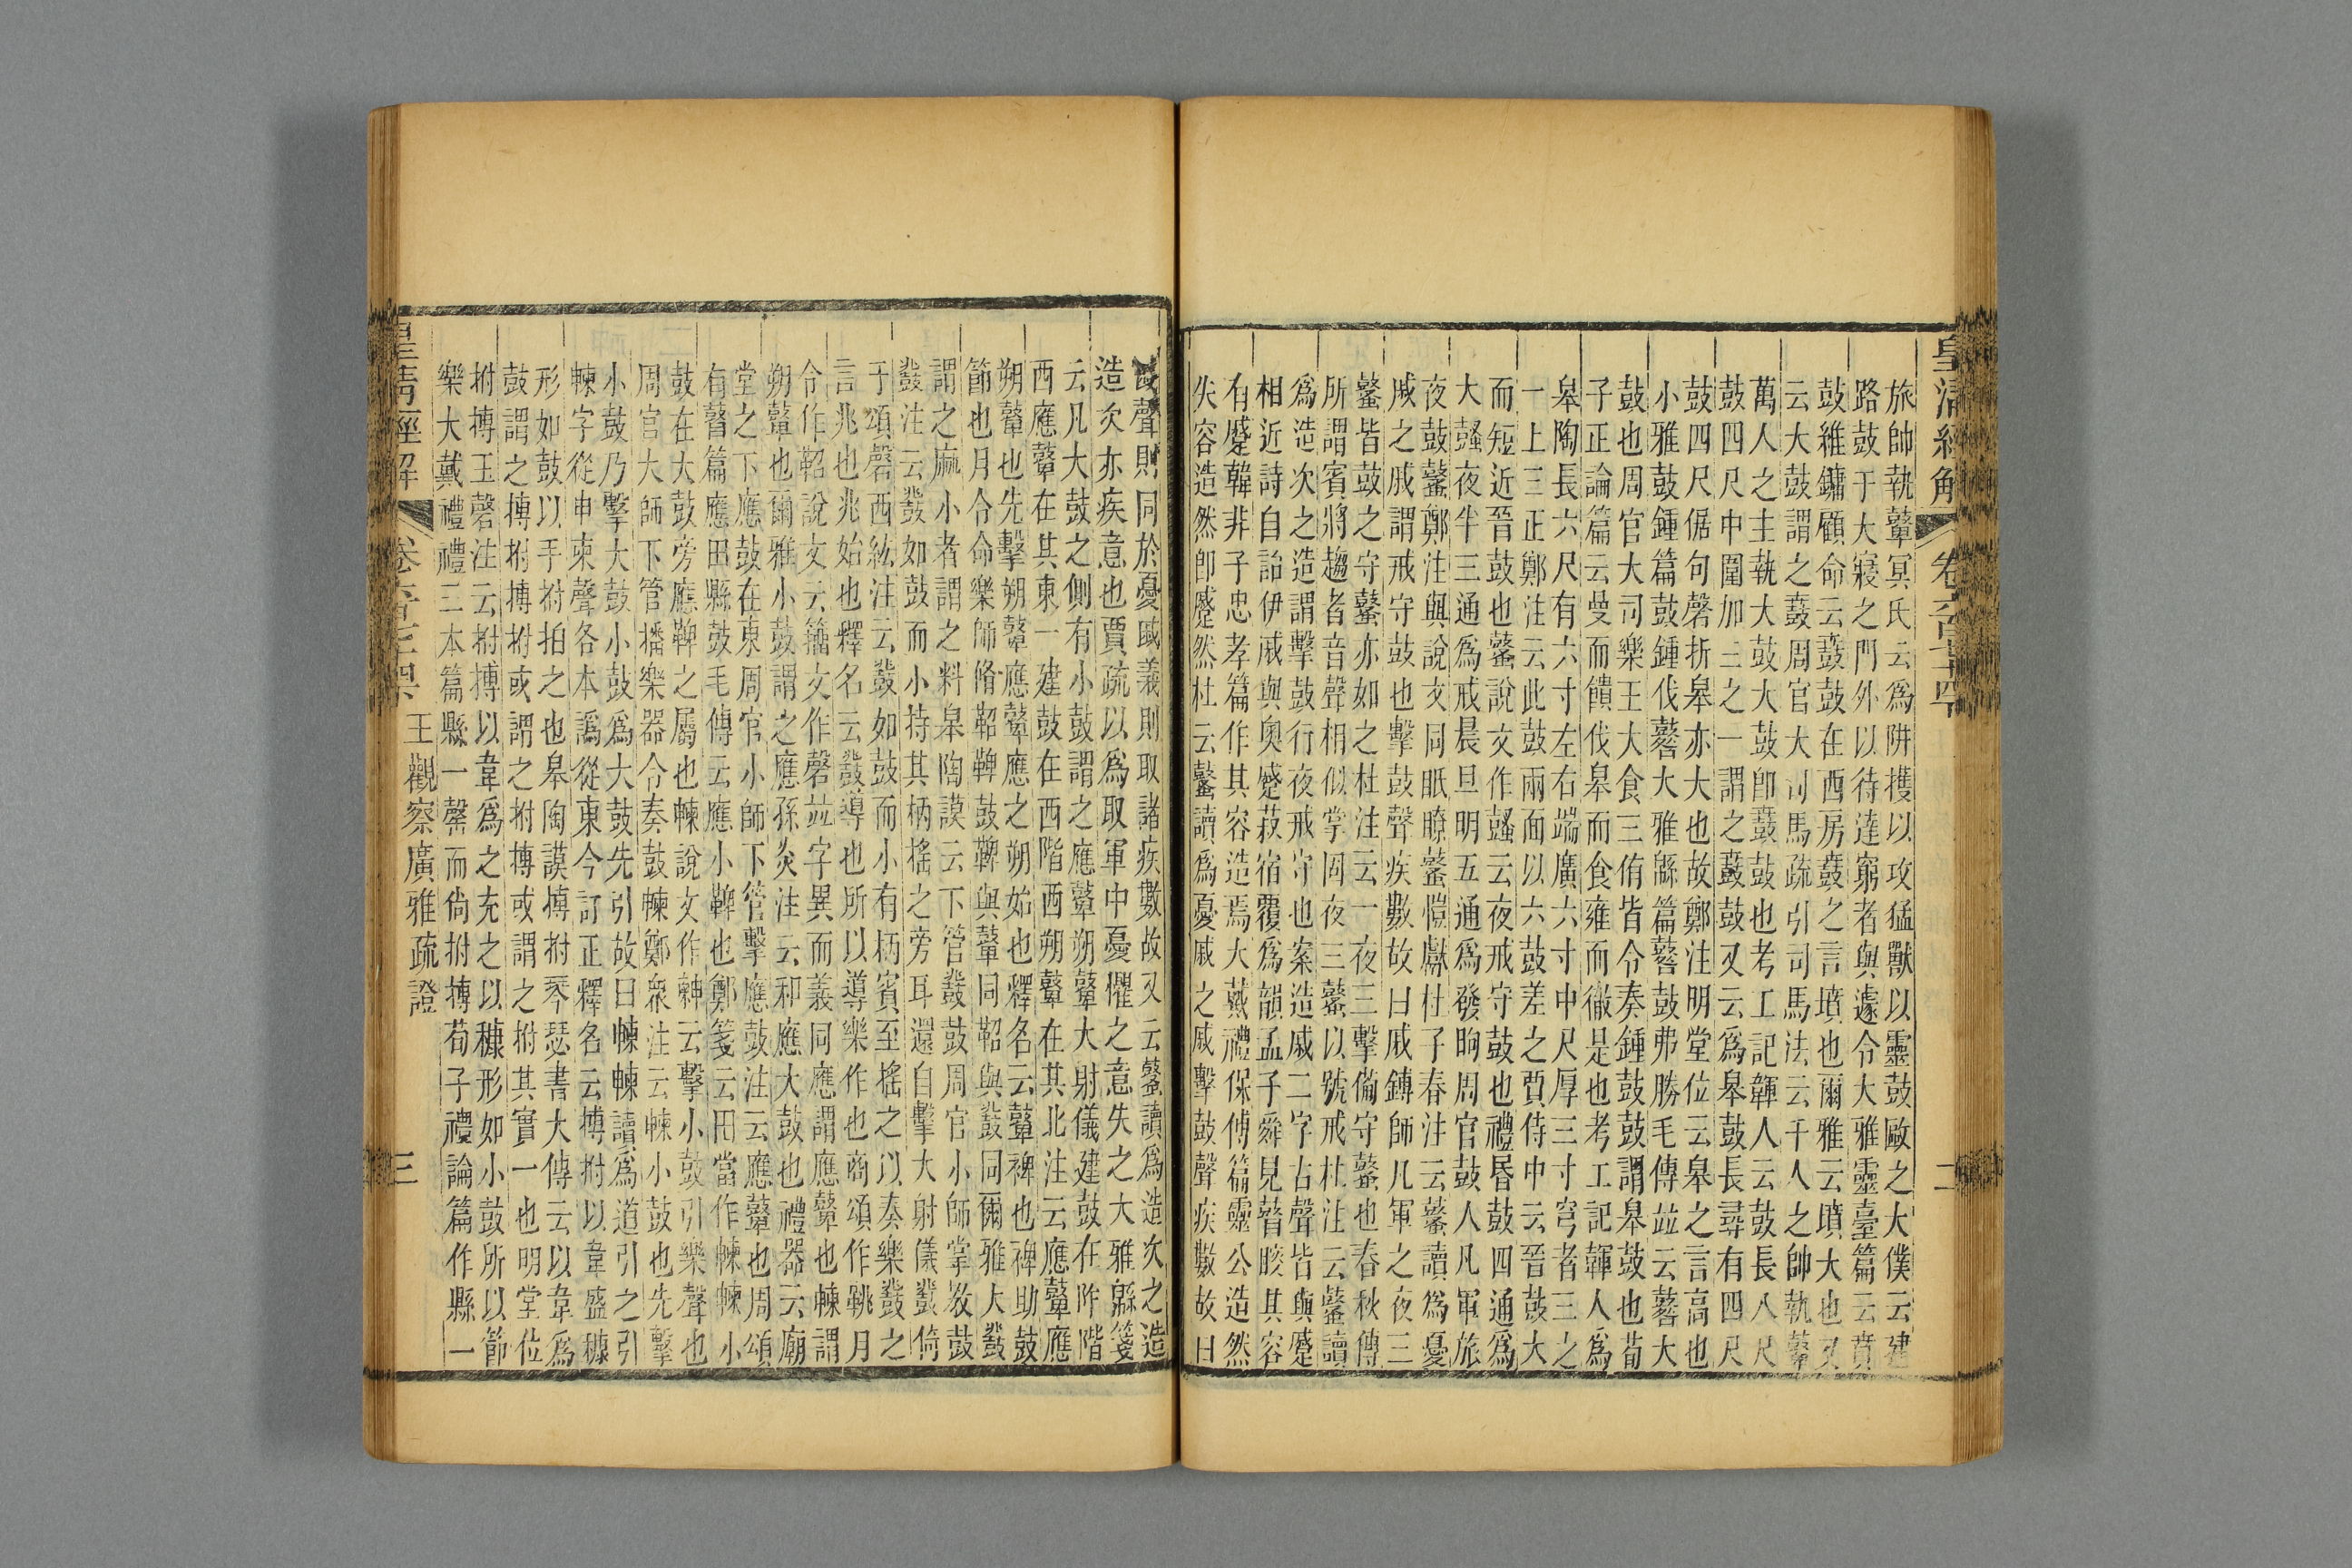 皇清經解 卷六百七十四 二
旅帥執鼙冥氏云爲阱擭以攻猛獸以靈鼓敺之大僕云建
路鼓于大寢之門外以待達窮者與遽令大雅靈臺篇云賁
鼓維鏞顧命云鼖鼓在西房鼖之言墳也爾雅云墳大也又
云大鼓謂之鼖周官大司馬疏引司馬法云千人之帥執鼙
萬人之主執大鼓大鼓卽鼖鼓也考工記韗人云鼓長八尺
鼓四尺中圍加三之一謂之鼖鼓又云爲皋鼓長尋有四尺
鼓四尺倨句磬折皋亦大也故鄭注明堂位云皋之言高也
小雅鼓鍾篇鼓鍾伐鼛大雅緜篇鼛鼓弗勝毛傳竝云鼛大
鼓也周官大司樂王大食三侑皆令奏鍾鼓鼓謂皋鼓也荀
子正論篇云曼而饋伐皋而食雍而徹是也考工記韗人爲
皋陶長六尺有六寸左右端廣六寸中尺厚三寸穹者三之
一上三正鄭注云此鼓兩面以六鼓差之賈侍中云晉鼓大
而短近晉鼓也鼜說文作鼜云夜戒守鼓也禮昬鼓四通爲
大鼜夜半三通爲戒晨旦明五通爲發昫周官鼓人凡軍旅
夜鼓鼜鄭注與說文同眡瞭鼜愷獻杜子春注云鼜讀爲憂
戚之戚謂戒守鼓也擊鼓聲疾數故曰戚鎛師凡軍之夜三
鼜皆鼓之守鼜亦如之杜注云一夜三擊備守鼜也春秋傳
所謂賓將趨者音聲相似掌固夜三鼜以號戒杜注云鼜讀
爲造次之造謂擊鼓行夜戒守也案造戚二字古聲皆與蹙
相近詩自詒伊戚與奧蹙菽宿覆爲韻孟子舜見瞽瞍其容
有蹙韓非子忠孝篇作其容造焉大戴禮保傅篇靈公造然
失容造然卽蹙然杜云鼜讀爲憂戚之戚擊鼓聲疾數故曰
戚聲則同於憂戚義則取諸疾數故又云鼜讀爲造次之造
造次亦疾意也賈疏以爲取軍中憂懼之意失之大雅緜箋
云凡大鼓之側有小鼓謂之應鼙朔鼙大射儀建鼓在阼階
西應鼙在其東一建鼓在西階西朔鼙在其北注云應鼙應
朔鼙也先擊朔鼙應鼙應之朔始也釋名云鼙裨也裨助鼓
節也月令命樂師脩鞀鞞鼓鞞與鼙同鞀與鼗同爾雅大鼗
謂之麻小者謂之料皋陶謨云下管鼗鼓周官小師掌敎鼓
鼗注云鼗如鼓而小持其柄搖之旁耳還自擊大射儀鼗倚
于頌磬西紘注云鼗如鼓而小有柄賓至搖之以奏樂鼗之
言兆也兆始也釋名云鼗導也所以導樂作也商頌作鞉月
令作鞀說文云籀文作磬竝字異而義同應謂應鼙也朄謂
朔鼙也爾雅小鼓謂之應孫炎注云和應大鼓也禮器云廟
堂之下應鼓在東周官小師下管擊應鼓注云應鼙也周頌
有瞽篇應田縣鼓毛傳云應小鞞也鄭箋云田當作朄朄小
鼓在大鼓旁應鞞之屬也朄說文作云擊小鼓引樂聲也
周官大師下管播樂器令奏鼓朄鄭衆注云朄小鼓也先擊
小鼓乃擊大鼓小鼓爲大鼓先引故曰朄朄讀爲道引之引
朄字從申柬聲各本譌從東今訂正釋名云搏拊以韋盛穅
形如鼓以手拊拍之也皋陶謨搏拊琴瑟書大傳云以韋爲
鼓謂之搏拊搏拊或謂之拊搏或謂之拊其實一也明堂位
拊搏玉磬注云拊搏以韋爲之充之以穅形如小鼓所以節
樂大戴禮禮三本篇縣一罄而尙拊搏荀子禮論篇作縣一
皇清經解 卷六百七十四 王觀察廣雅疏證 三